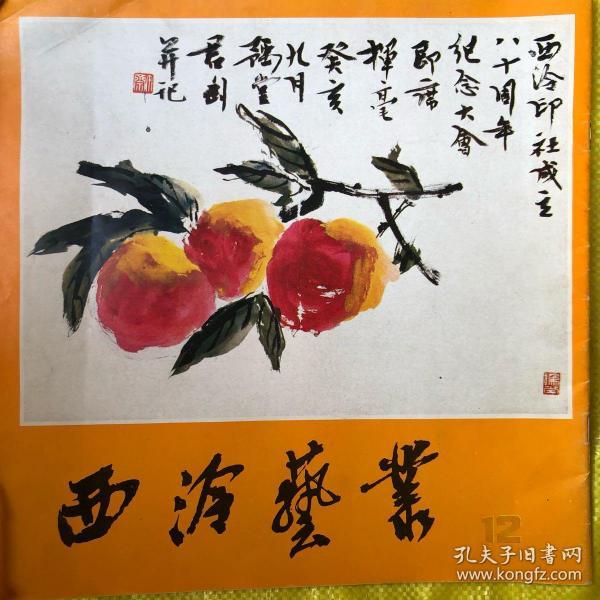 西泠印社成立
八十周年
纪念大會
即席
揮毫
癸亥
九月
君
并记
西泠藝叢
12
孔夫子旧书网
www.kongfz.com